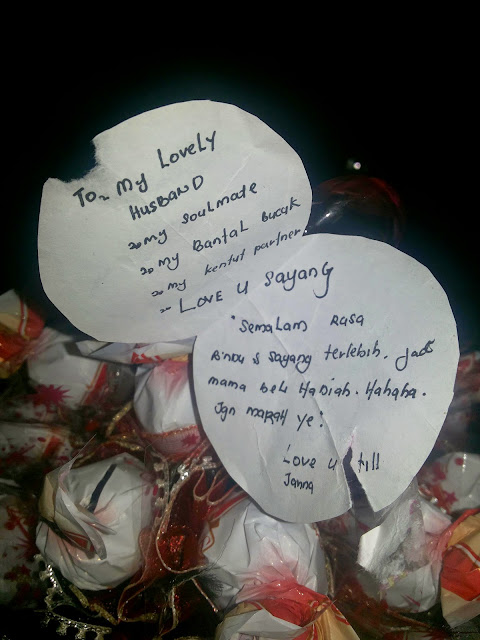 To~ My Lovely
HUSBAND
~ my soulmate
~ my Bantal Bucuk
~ my kentut partner
~ Love u sayang
"Semalam rasa
Rindu s sayang terlebih. Jadi
mama beli Hadiah. Hahaha.
Jgn marah ye!
Love u till
Janna